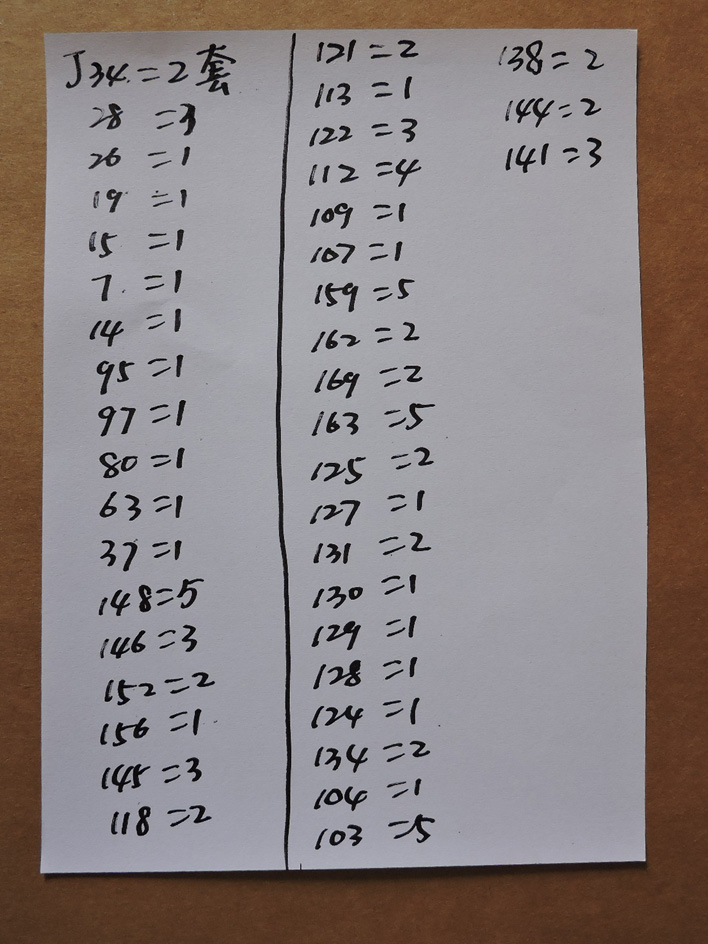 J34=2套
28=3
26=1
19=1
15=1
7=1
14=1
95=1
97=1
80=1
63=1
37=1
148=5
146=3
152=2
156=1
145=3
118=2
121=2
113=1
122=3
112=4
109=1
107=1
159=5
162=2
169=2
163=5
125=2
127=1
131=2
130=1
129=1
128=1
124=1
134=2
104=1
103=5
138=2
144=2
141=3